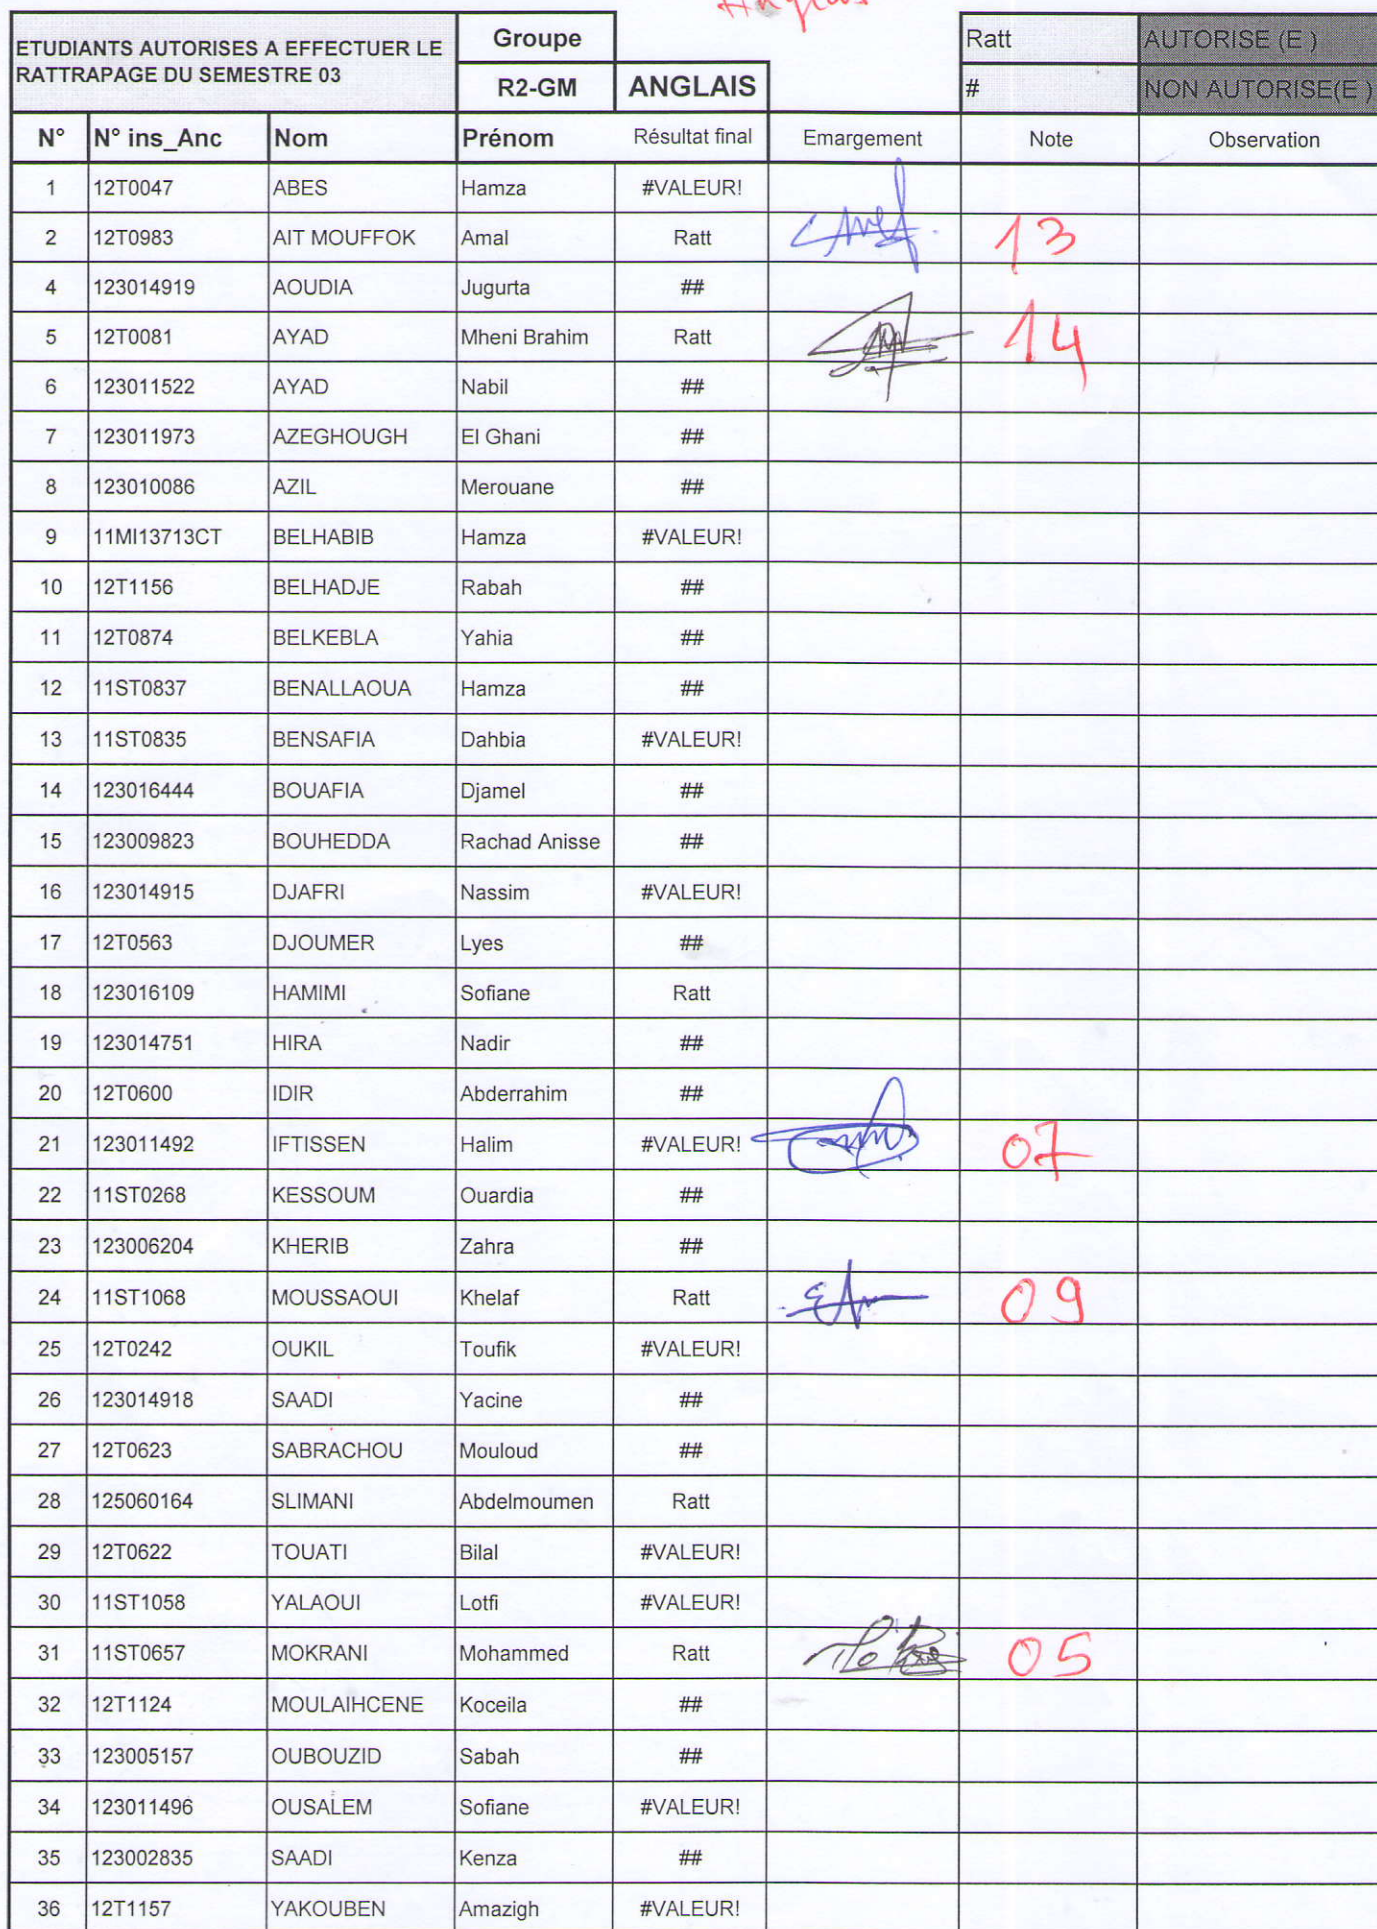 Anglais
ETUDIANTS AUTORISES A EFFECTUER LE RATTRAPAGE DU SEMESTRE 03 Groupe Ratt AUTORISE (E )
R2-GM ANGLAIS # NON AUTORISE(E )
N° N° ins_Anc Nom Prénom Résultat final Emargement Note Observation
1 12T0047 ABES Hamza #VALEUR!
2 12T0983 AIT MOUFFOK Amal Ratt 13
4 123014919 AOUDIA Jugurta ##
5 12T0081 AYAD Mheni Brahim Ratt 14
6 123011522 AYAD Nabil ##
7 123011973 AZEGHOUGH El Ghani ##
8 123010086 AZIL Merouane ##
9 11MI13713CT BELHABIB Hamza #VALEUR!
10 12T1156 BELHADJE Rabah ##
11 12T0874 BELKEBLA Yahia ##
12 11ST0837 BENALLAOUA Hamza ##
13 11ST0835 BENSAFIA Dahbia #VALEUR!
14 123016444 BOUAFIA Djamel ##
15 123009823 BOUHEDDA Rachad Anisse ##
16 123014915 DJAFRI Nassim #VALEUR!
17 12T0563 DJOUMER Lyes ##
18 123016109 HAMIMI Sofiane Ratt
19 123014751 HIRA Nadir ##
20 12T0600 IDIR Abderrahim ##
21 123011492 IFTISSEN Halim #VALEUR! 07
22 11ST0268 KESSOUM Ouardia ##
23 123006204 KHERIB Zahra ##
24 11ST1068 MOUSSAOUI Khelaf Ratt 09
25 12T0242 OUKIL Toufik #VALEUR!
26 123014918 SAADI Yacine ##
27 12T0623 SABRACHOU Mouloud ##
28 125060164 SLIMANI Abdelmoumen Ratt
29 12T0622 TOUATI Bilal #VALEUR!
30 11ST1058 YALAOUI Lotfi #VALEUR!
31 11ST0657 MOKRANI Mohammed Ratt 05
32 12T1124 MOULAIHCENE Koceila ##
33 123005157 OUBOUZID Sabah ##
34 123011496 OUSALEM Sofiane #VALEUR!
35 123002835 SAADI Kenza ##
36 12T1157 YAKOUBEN Amazigh #VALEUR!